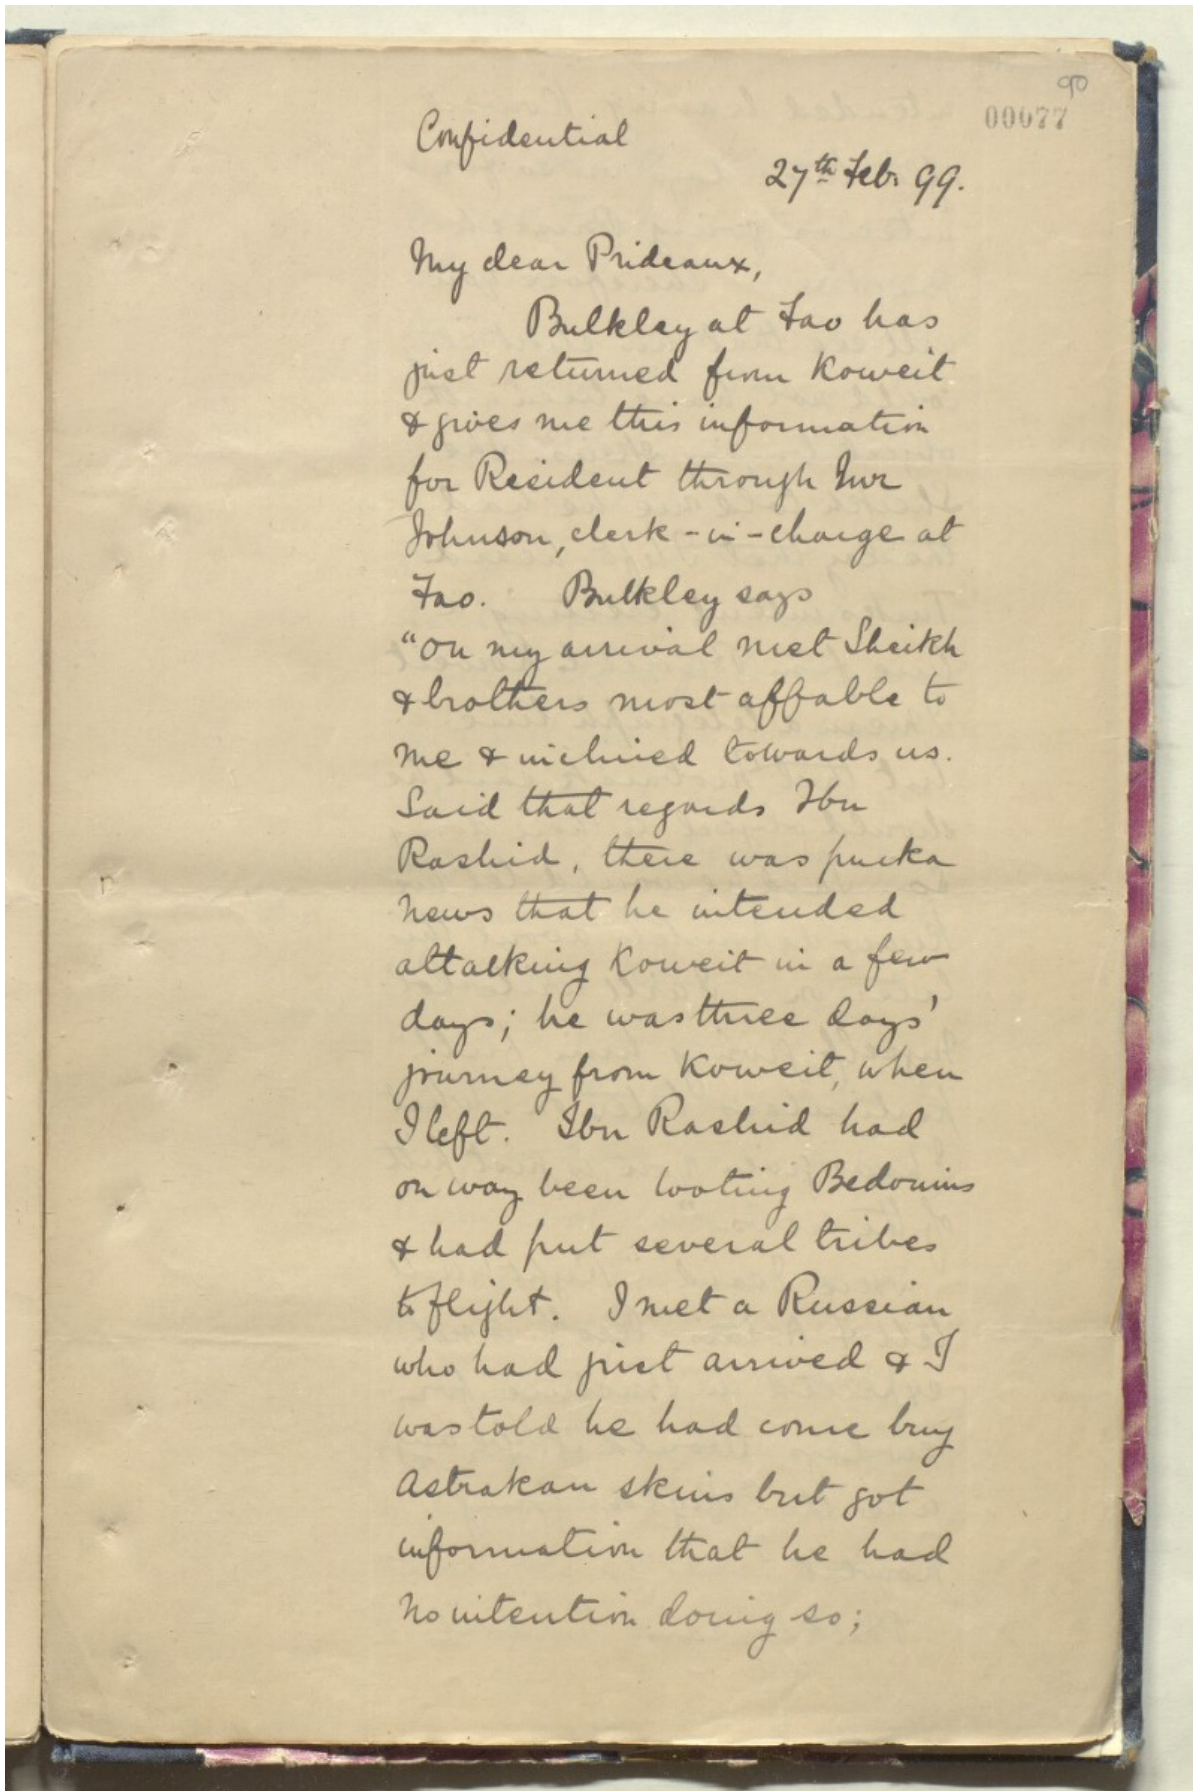 90
00077
Confidential
27th Feb. 99.
My dear Prideaux,
Bulkley at Fao has
just returned from Koweit
& gives me this information
for Resident through Mr
Johnson, clerk-in-charge at
Fao. Bulkley says
"On my arrival met Sheikh
& brothers most affable to
me & inclined towards us.
Said that regards Ibn
Rashid, there was pucka
news that he intended
attacking Koweit in a few
days; he was three days'
journey from Koweit, when
I left. Ibn Rashid had
on way been looting Bedouins
& had put several tribes
to flight. I met a Russian
who had just arrived & I
was told he had come buy
Astrakan skins but got
information that he had
no intention doing so;